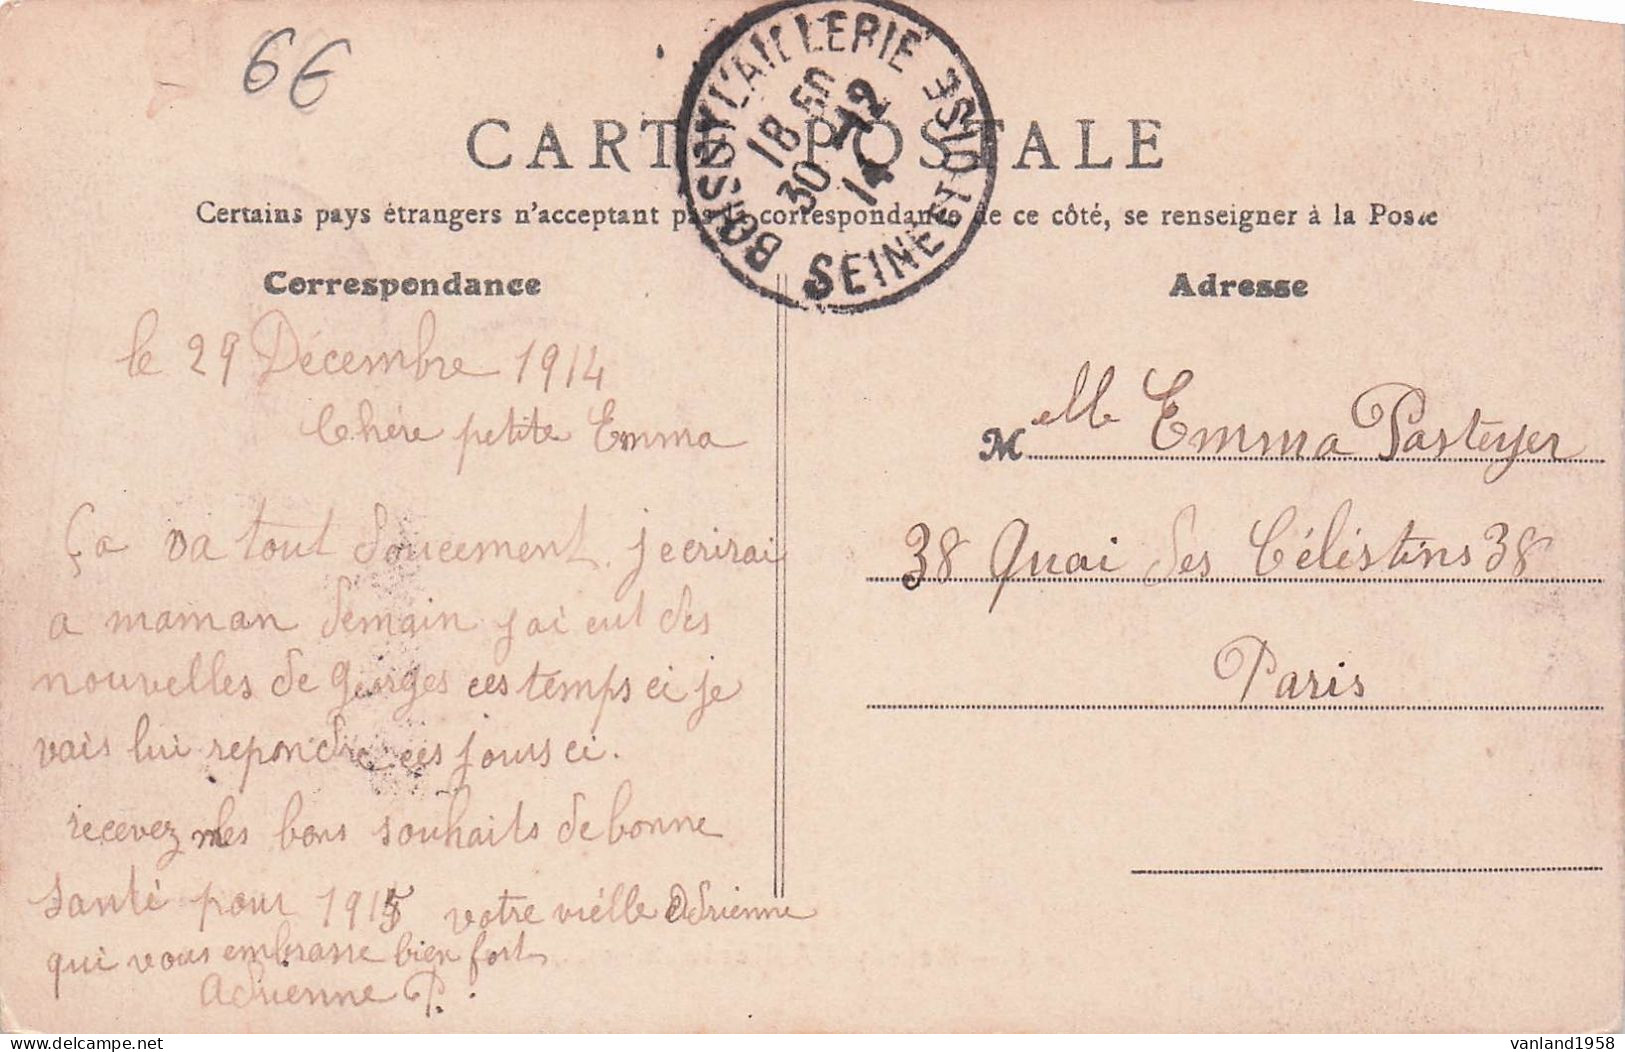 6€
CARTE POSTALE
Certains pays étrangers n'acceptent pas la correspondance de ce côté, se renseigner à la Poste
BOISSY L'AILLERIE
18 50
30 -12
14
SEINE ET OISE
Correspondance
le 29 Décembre 1914
Chére petite Emma
Ça va tout doucement. jecrirai
a maman demain j ai eut des
nouvelles de georges ces temps ci je
vais lui repondre ces jours ci.
recevez mes bons souhaits de bonne
santé pour 1915 votre vieille Adrienne
qui vous embrasse bien fort
Adrienne P.
Adresse
Melle Emma Pasteyer
38 Quai des Célèstins 38
Paris
www.delcampe.net
vanland1958